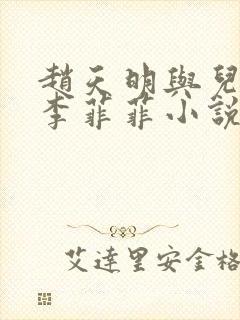 趙天明與兒
李菲菲小說
艾達里安金格